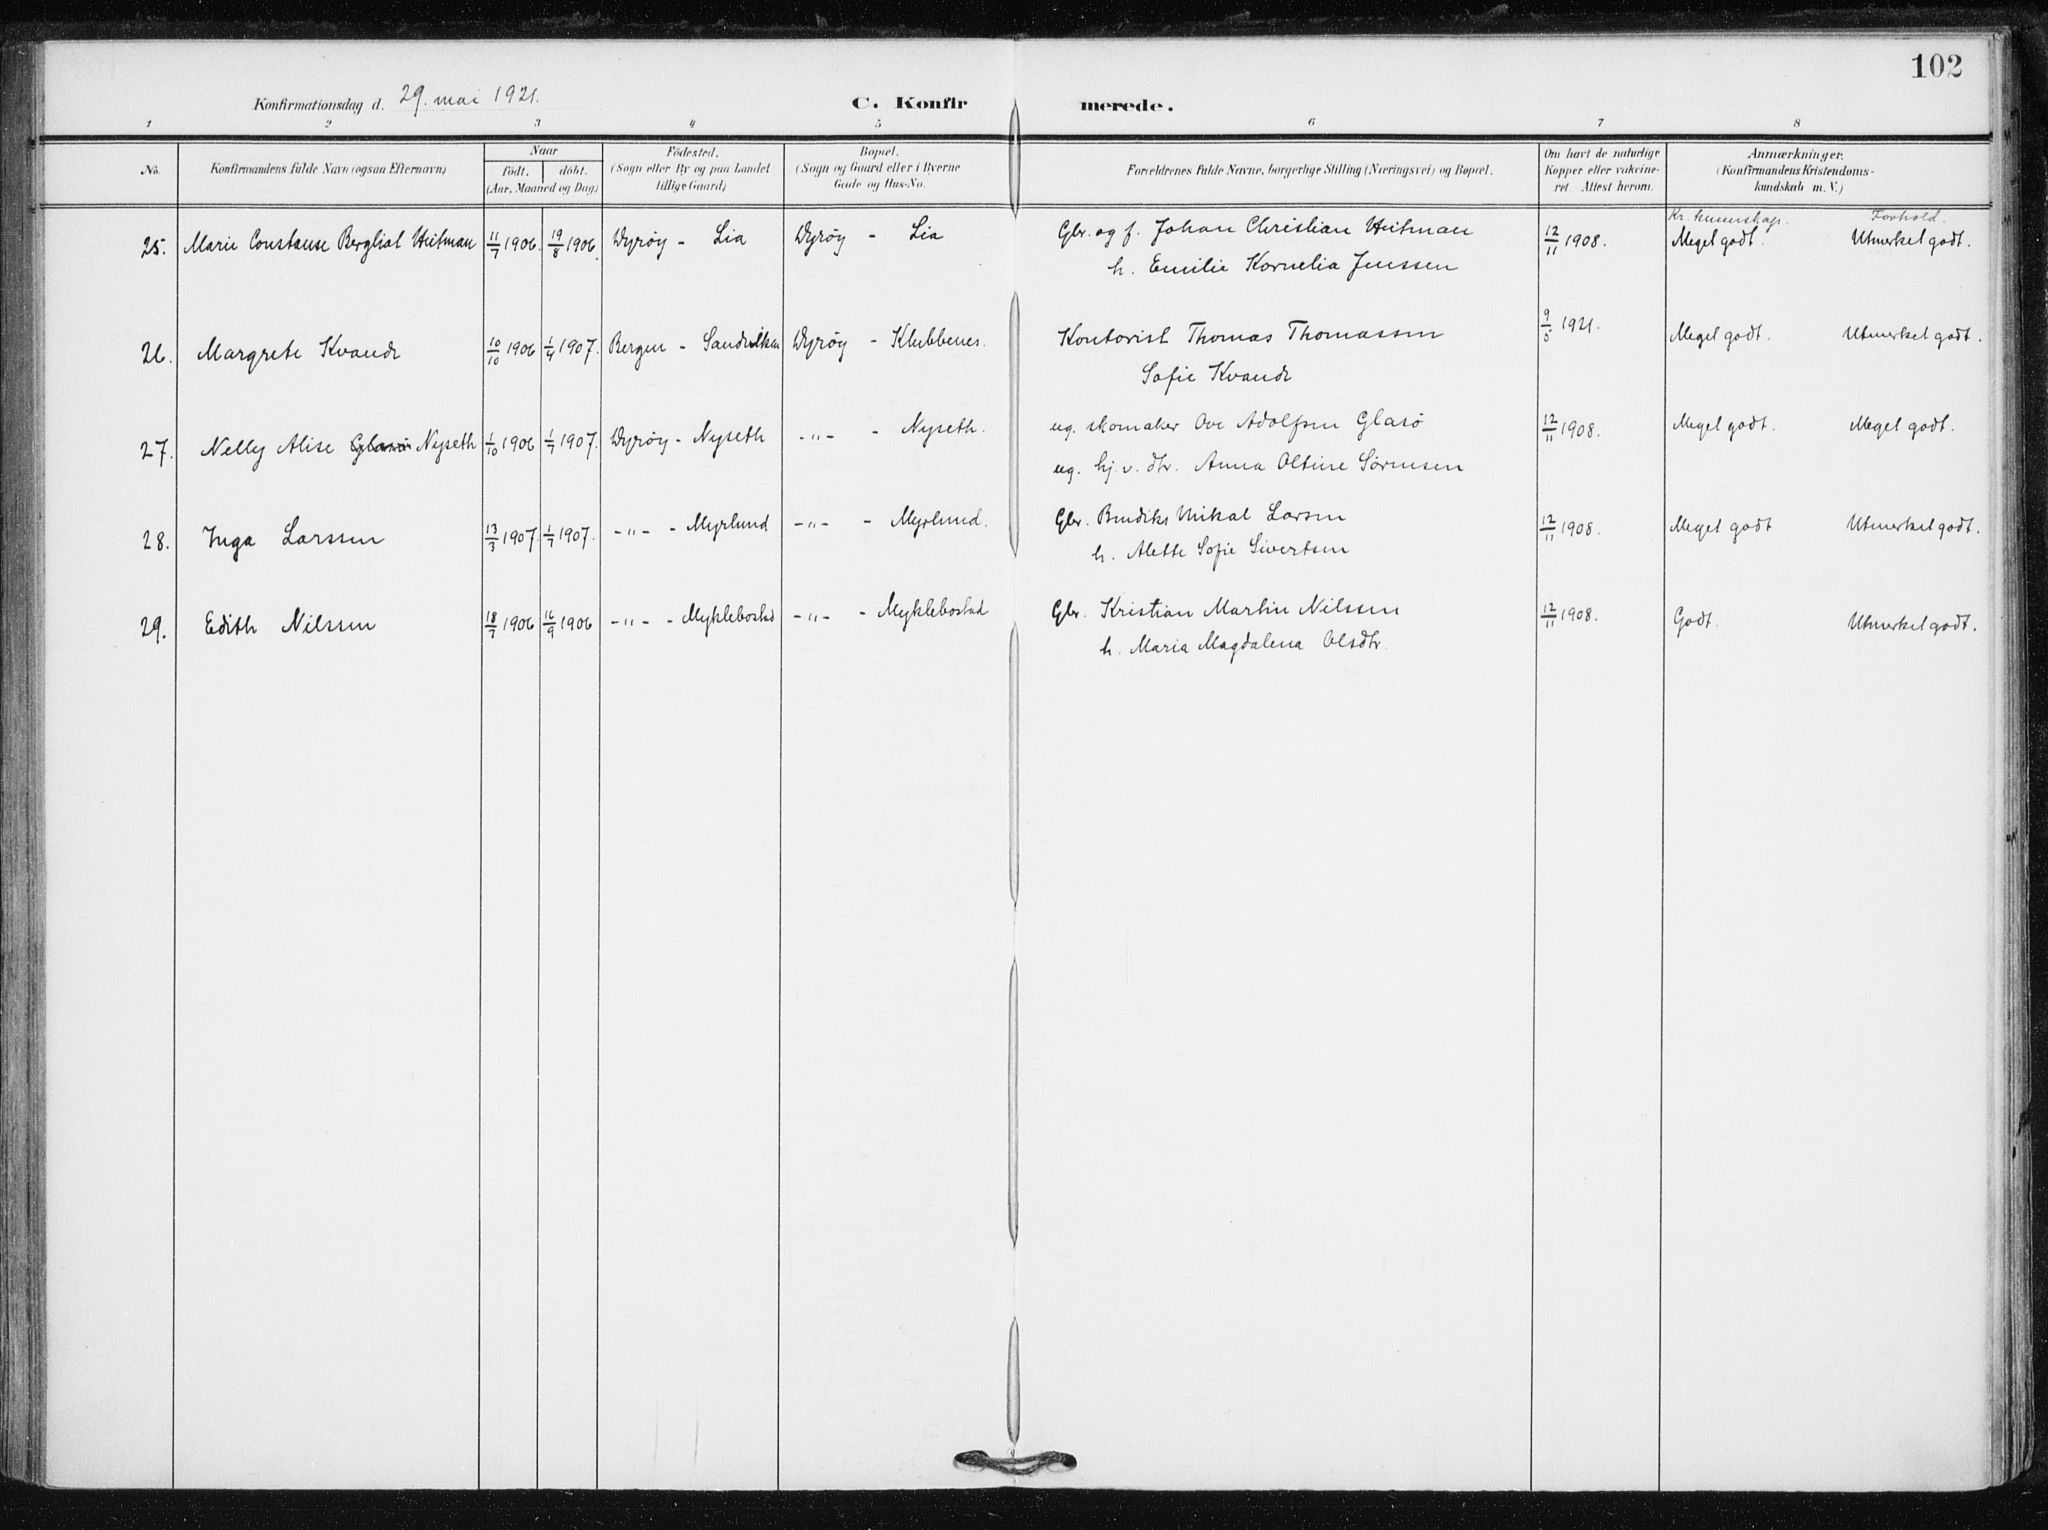 102
Konfirmationsdag d. 29. mai 1921.
C. Konfirmerede.
1 2 3 4 5 6 7 8
No.
Konfirmandens fulde Navn (ogsaa Efternavn)
Naar
født. døbt.
(Aar, Maaned og Dag)
Fødested.
(Sogn eller By og paa Landet
tillige Gaard)
Bopæl.
(Sogn og Gaard eller i Byerne
Gade og Hus-No.
Forældrenes fulde Navne, borgerlige Stilling (Næringsvei) og Bopæl.
Om havt de naturlige
Kopper eller vakcine-
ret Attest herom.
Anmærkninger.
(Konfirmandens Kristendoms-
kundskab m. V.)
Kr. kunnskap. Forhold.
25. Marie Constanse Bergliot Heitman 11/7 1906. 19/8 1906. Dyrøy - Lia Dyrøy - Lia Gbr. og f. Johan Christian Heitman 12/11 1908. Meget godt. Utmerket godt.
h. Emilie Kornelia Jenssen
26. Margrete Kvande 10/10 1906 1/4 1907. Bergen - Sandviken Dyrøy - Klubbenes. Kontorist Thomas Thomassen 9/5 1921. Meget godt. Utmerket godt.
Sofie Kvande
27. Nelly Alise Glasø Nyseth 1/10 1906 1/7 1907. Dyrøy - Nyseth -"- - Nyseth. ug. skomaker Ove Adolfsen Glasø 12/11 1908. Meget godt. Meget godt.
ug. hj. v. dtr. Anna Oltine Sørensen
28. Inga Larssen 13/3 1907. 1/7 1907. -"- - Myrlund -"- - Myrlund. Gbr. Bendiks Mikal Larsen 12/11 1908. Meget godt Utmerket godt.
h. Alette Sofie Sivertsen
29. Edith Nilssen 18/7 1906 16/9 1906 -"- - Myklebostad -"- - Myklebostad Gbr. Kristian Martin Nilssen 12/11 1908. Godt. Utmerket godt.
h. Maria Magdalena Olsdtr.